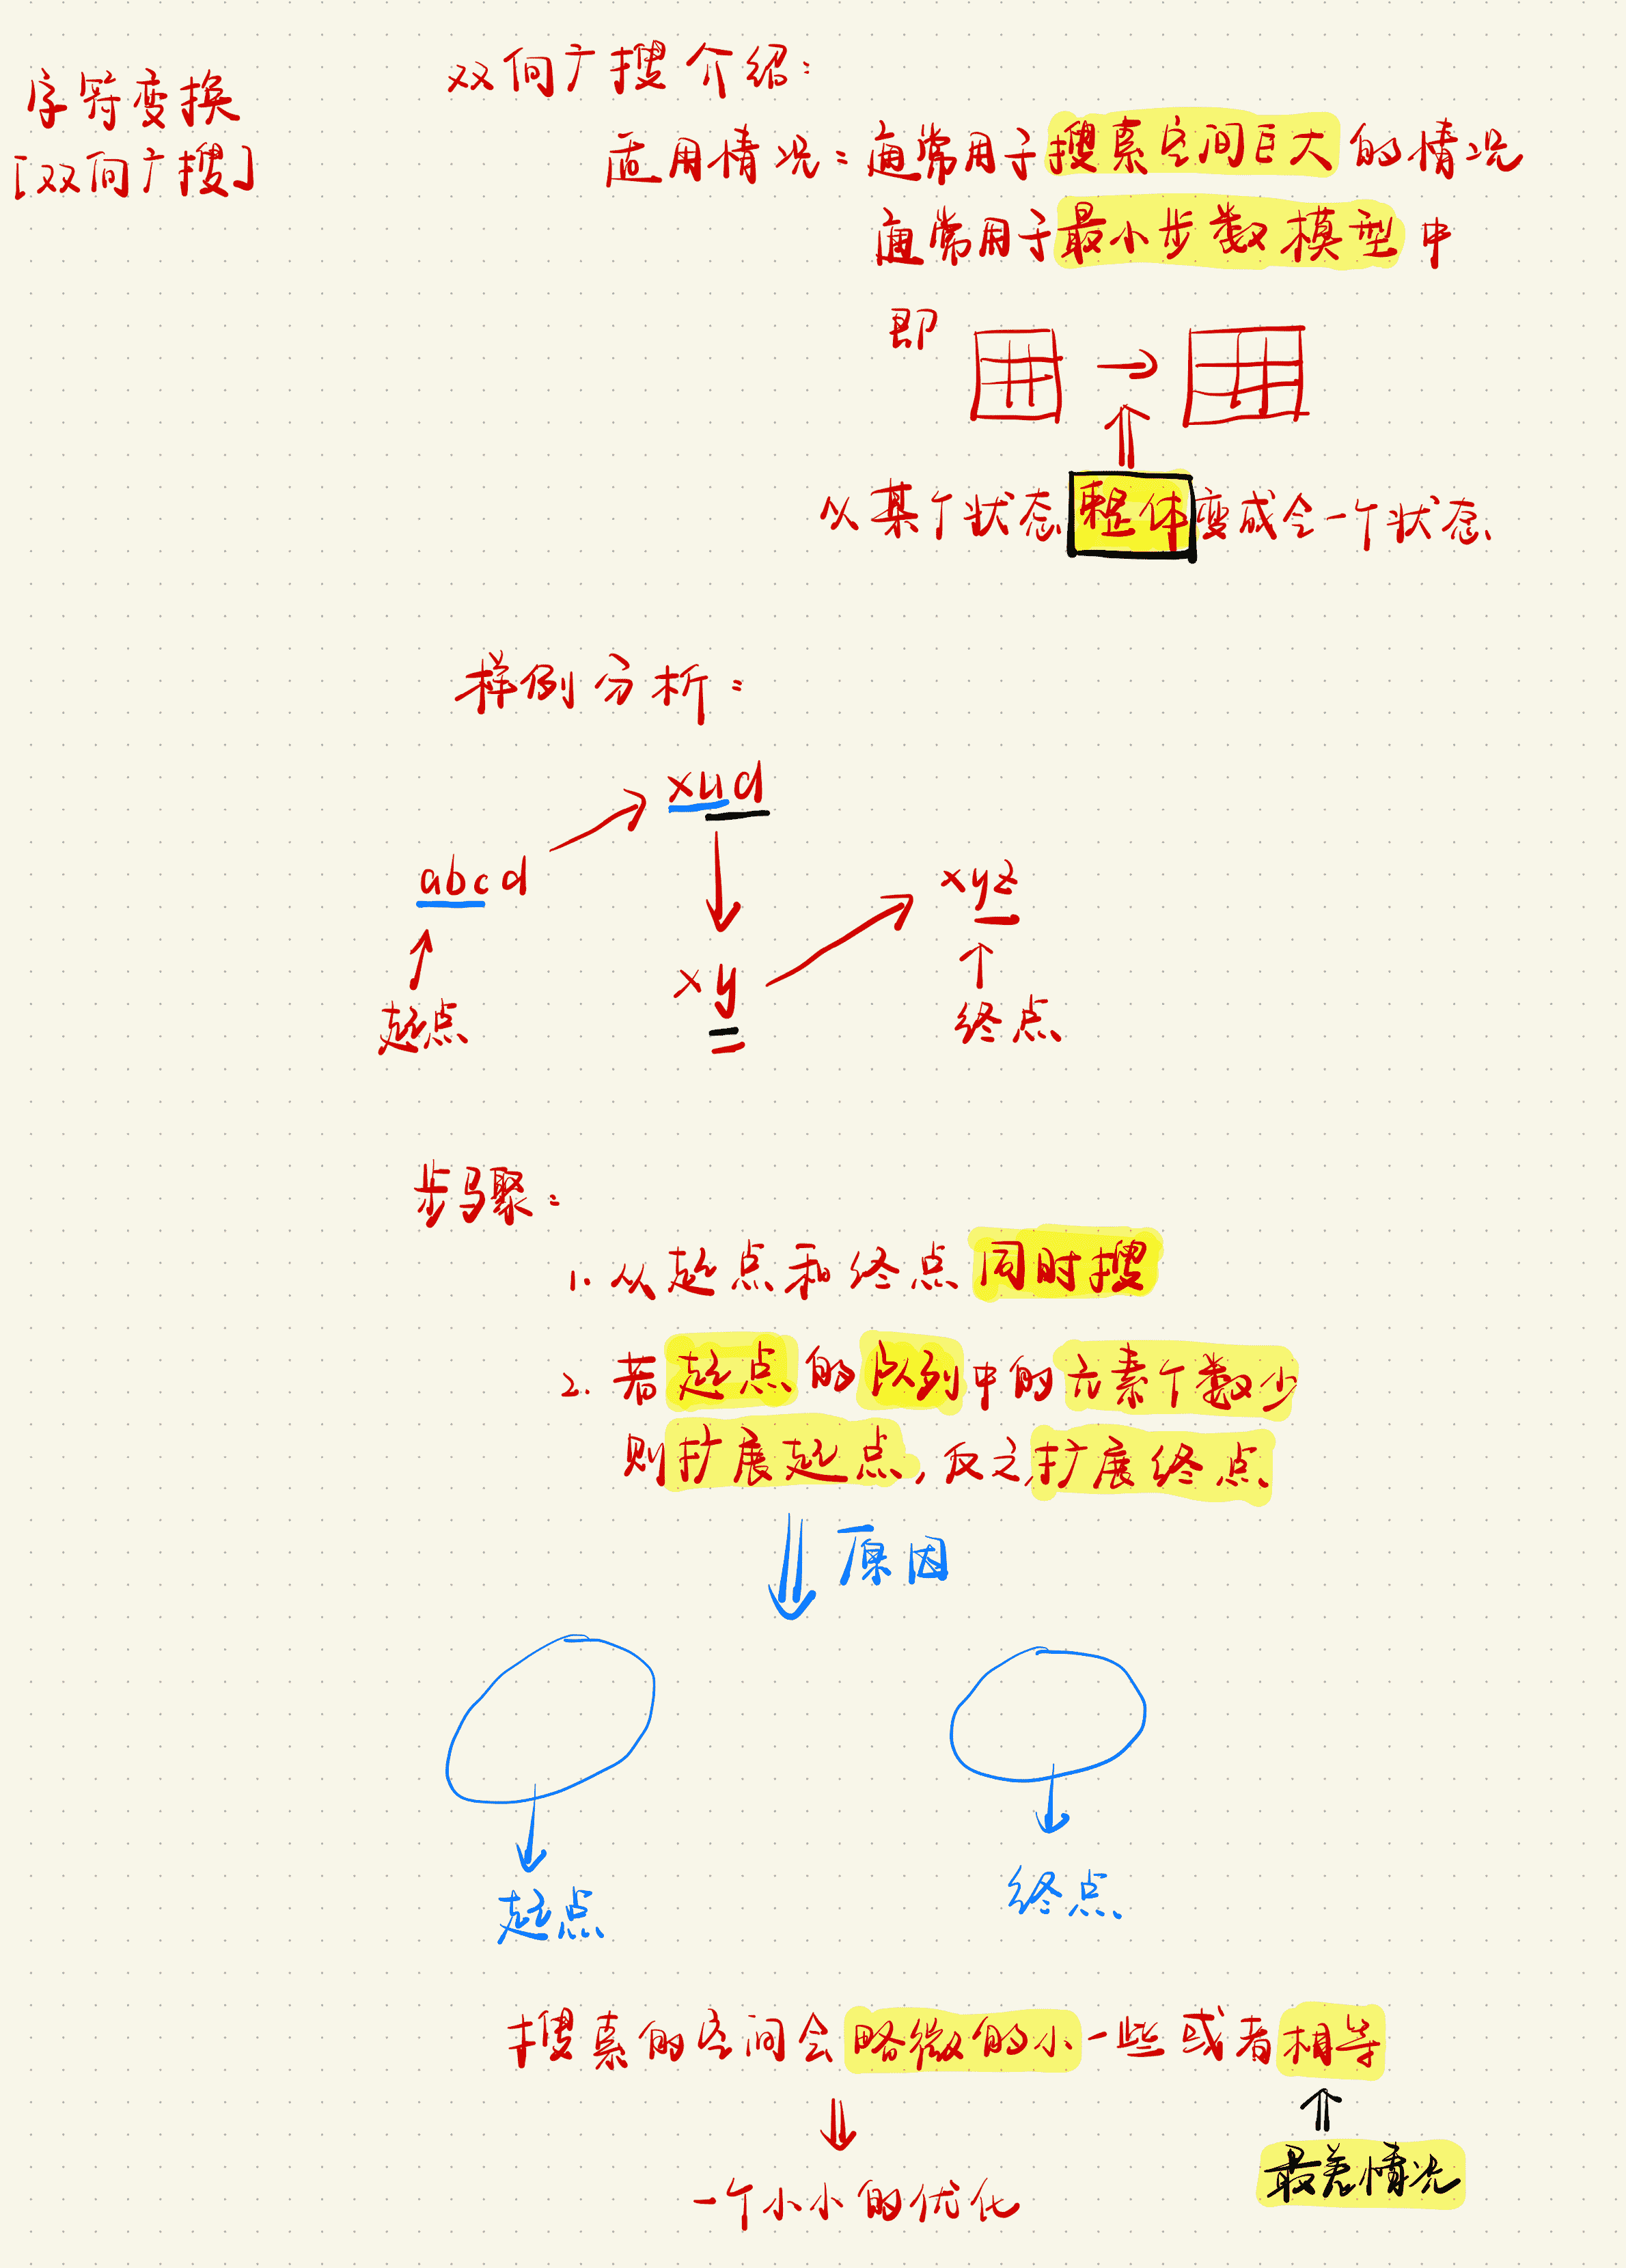 字符变换
[双向广搜]
双向广搜介绍:
适用情况:通常用于搜索空间巨大的情况
通常用于最小步数模型中
即
从某个状态整体变成令一个状态
样例分析:
xud
abcd
xyz
xy
起点
终点
步骤:
1. 从起点和终点同时搜
2. 若起点的队列中的元素个数少
则扩展起点,反之,扩展终点
原因
起点
终点
搜索的空间会略微的小一些或者相等
最差情况
一个小小的优化